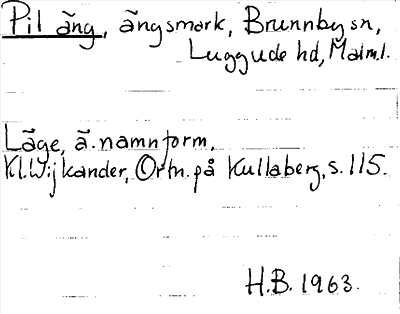 Pil äng, ängsmark, Brunnby sn,
Luggude hd, Malm.l.
Läge, ä. namnform.
Kl. Wijkander, Ortn. på Kullaberg, s. 115.
H.B. 1963.